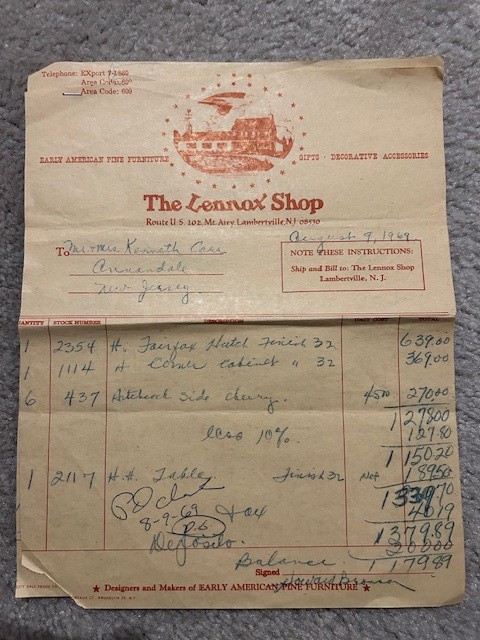 Telephone: EXport 7-1860
Area Code: 609
EARLY AMERICAN FINE FURNITURE
GIFTS · DECORATIVE ACCESSORIES
The Lennox Shop
Route U.S. 202, Mt. Airy, Lambertville, N.J. 08530
August 9, 1969
To Mr. + Mrs. Kenneth Carr
Annandale
New Jersey
NOTE THESE INSTRUCTIONS:
Ship and Bill to: The Lennox Shop
Lambertville, N. J.
QUANTITY STOCK NUMBER DESCRIPTION UNIT COST TOTAL
1 2354 H. Fairfax Hutch Finish 32 639.00
1 1114 H Corner Cabinet " 32 369.00
6 437 Hitchcock Side Cherry. 45.00 270.00
1278.00
less 10% 127.80
1150.20
1 2117 H.H. Table Finish 32 Net 189.50
1339.70
8-9-69 Tax 40.19
1379.89
Deposit 200.00
Balance 1179.89
Signed Howard Bronson
★ Designers and Makers of EARLY AMERICAN FINE FURNITURE ★